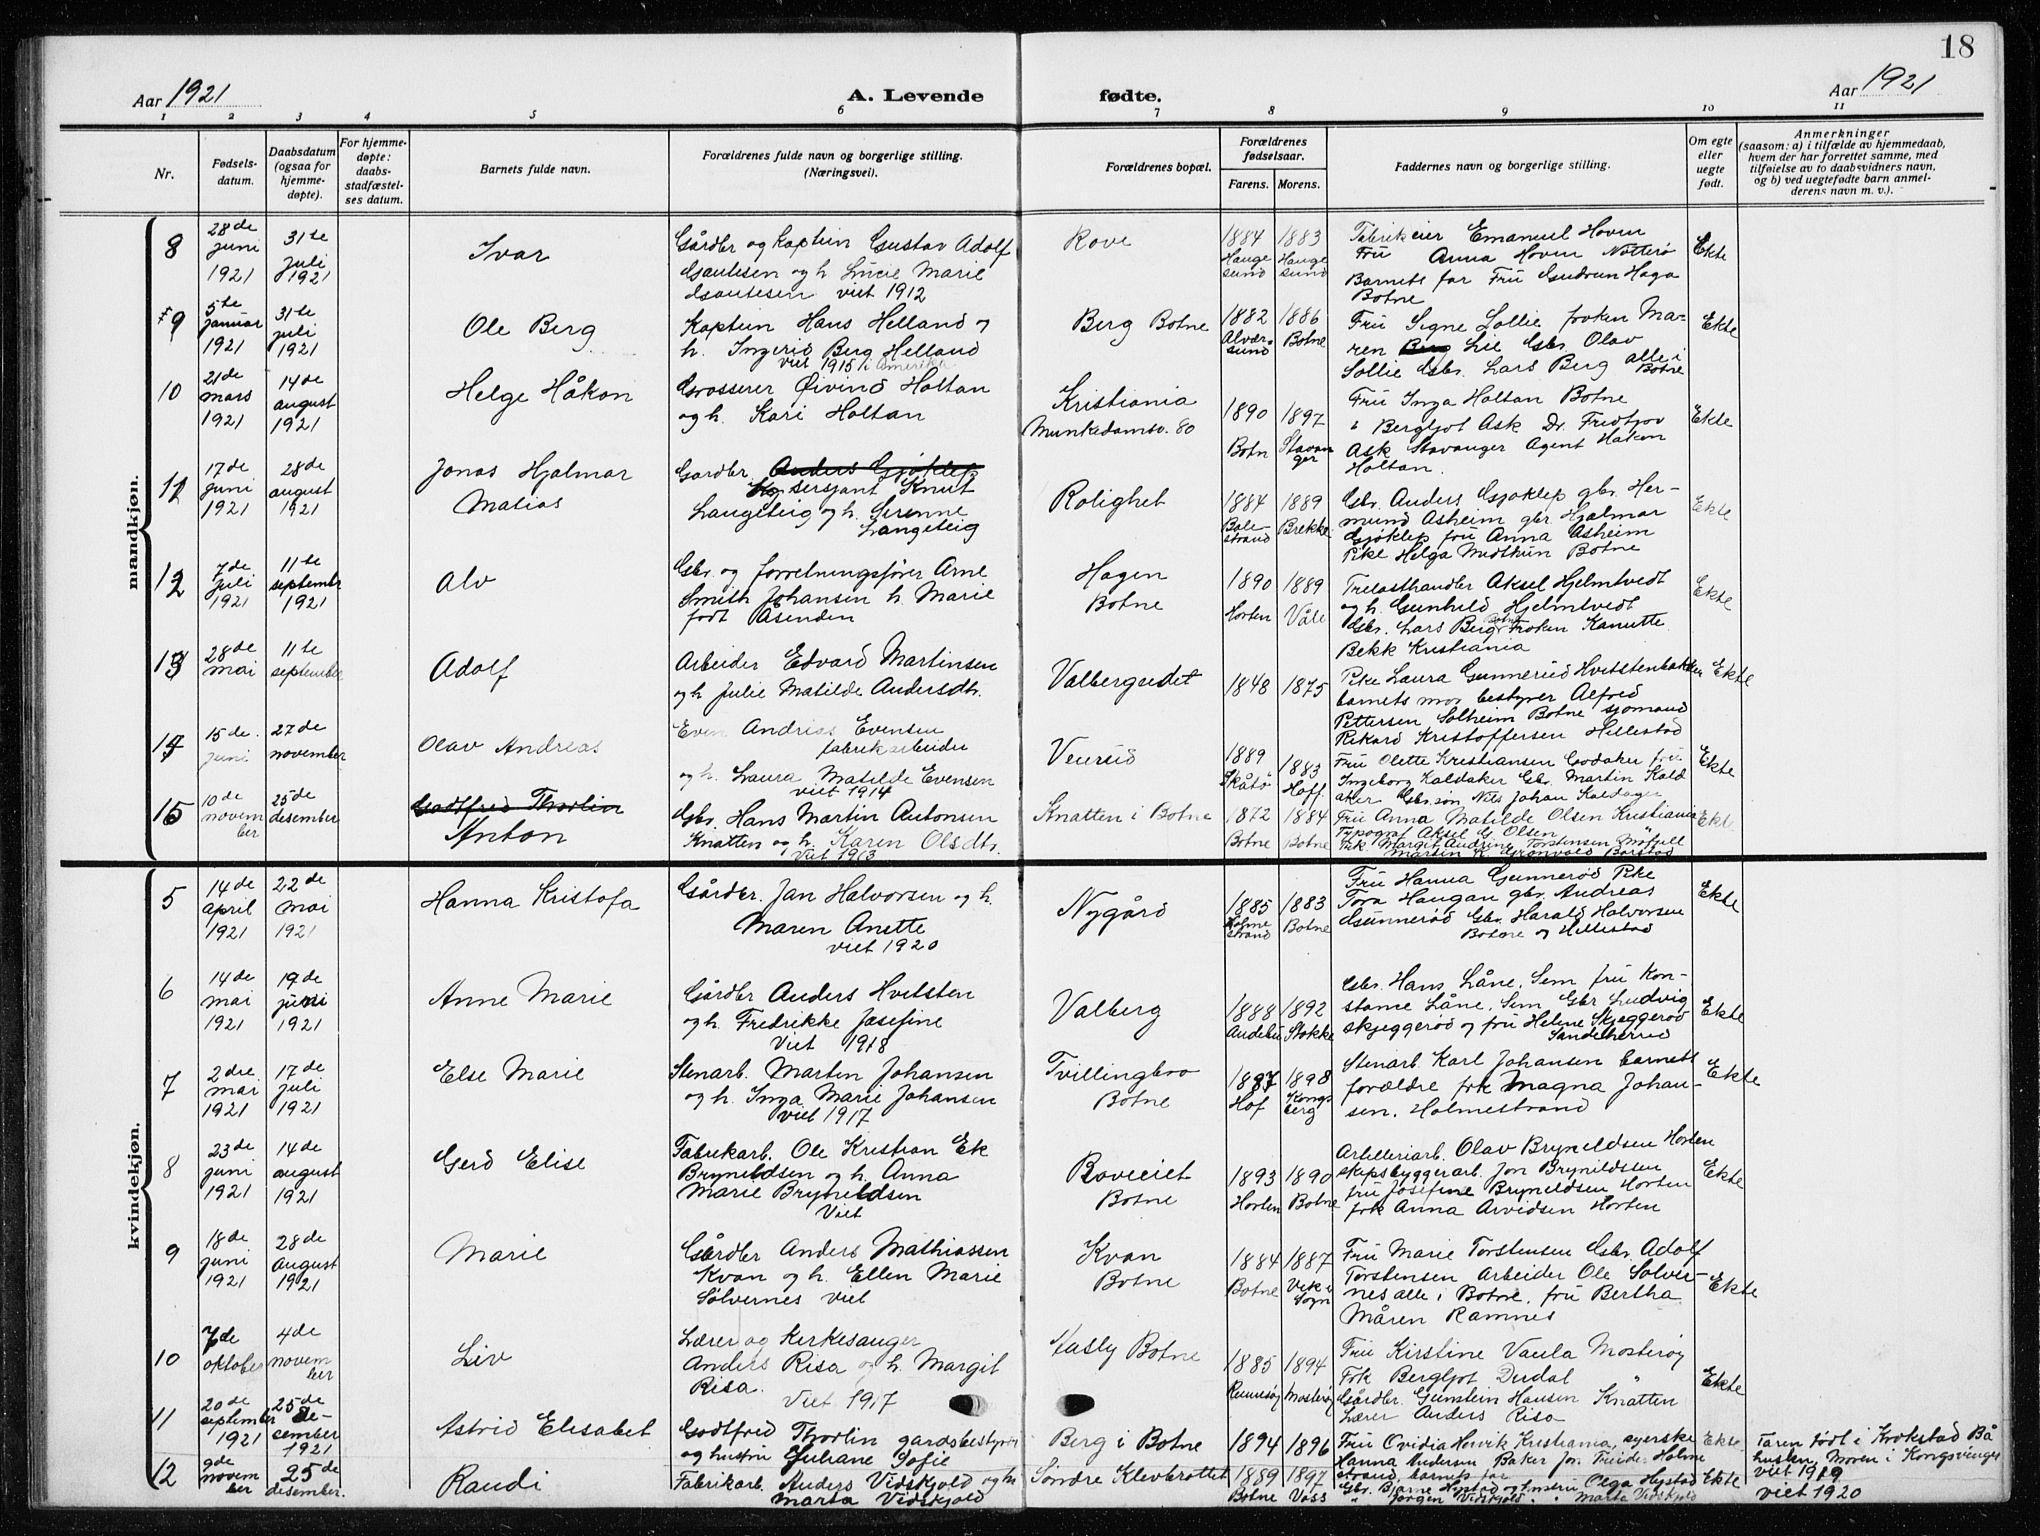 18
Aar 1921
A. Levende fødte.
Aar 1921
1 2 3 4 5 6 7 8 9 10 11
Nr.
Fødsels-
datum.
Daabsdatum
(ogsaa for
hjemme-
døpte).
For hjemme-
døpte:
daabs-
stadfæstel-
ses datum.
Barnets fulde navn.
Forældrenes fulde navn og borgerlige stilling.
(Næringsvei).
Forældrenes bopæl.
Forældrenes
fødselsaar.
Farens. Morens.
Faddernes navn og borgerlige stilling.
Om egte
eller
uegte
født.
Anmerkninger
(saasom: a) i tilfælde av hjemmedaab,
hvem der har forrettet samme, med
tilføielse av to daabsvidners navn,
og b) ved uegtefødte barn anmel-
derens navn m. v.).
mandkjøn.
8
28de
juni
1921
31te
juli
1921
Ivar
Gårdbr og kaptein Gustav Adolf
Gautesen og h. Lucie Marie
Gautesen viet 1912
Rove
1884
Hauge
sund
1883
Hauge
sund
Fabrikeier Emanuel Hoven
Fru Anna Hoven Nøtterø
Barnets far Fru Gudrun Haga
Botne
Ekte
9
5te
januar
1921
31te
juli
1921
Ole Berg
Kaptein Hans Helland og
h. Ingerid Berg Helland
viet 1915 i Amerika
Berg Botne
1882
Alver
sund
1886
Botne
Fru Signe Sollie frøken Ma-
ren Lie Gbr. Olav
Sollie Gbr. Lars Berg alle i
Botne
Ekte
10
21de
mars
1921
14de
august
1921
Helge Håkon
Grosserer Øivind Holtan
og h. Kari Holtan
Kristiania
Munkedamsv. 80
1890
Botn
1897
Stavan
ger
Fru Inga Holtan Botne
Bergljot Ask Dr. Fridtjov
Ask Stavanger Agent Håkon
Holtan.
Ekte
11
17de
juni
1921
28de
august
1921
Jonas Hjalmar
Matias
Gardbr. Anders Gjøklep
sersjant Knut
Langeteig og h. Sirenne
Langeteig
Rolighet
1884
Bale-
strand
1889
Brekke
Gbr. Anders Gjøklep gbr. Her-
mund Asheim gbr. Hjalmar
Gjøklep fru Anna Asheim
Pike Helga Botne
Ekte
12
7de
juli
1921
11te
september
1921
Alv
Gbr. og forretningsfører Arne
Smith Johansen h. Marie
født Åsenden
Hagen
Botne
1890
Horten
1889
Våle
Trelasthandler Aksel Hjelmtvedt
og h. Gunhild Hjelmtvedt
Gbr. Lars Berg Botne Frøken Kanutte
Bekk Kristiania
Ekte
13
28de
mai
11te
september
Adolf
Arbeider Edvard Martinsen
og h Julie Matilde Andersdtr.
Valbergeidet
1848
1875
Pike Laura Gunnerud Hvitstenbakken
barnets mor bestyrer Alfred
Pettersen Solheim Botne sjømand
Rikard Kristoffersen Hillestad
Ekte
14
15de
juni
27de
november
Olav Andreas
Even Andreas Evensen
fabrikarbeider
og h. Laura Matilde Evensen
viet 1914
Veursid
1889
Skåtø
1883
Hoff
Fru Olette Kristiansen fru
Ingeborg Kaldaker Gbr. Martin Kald
aker Gbr.søn Nils Johan Kaldager
Ekte
15
10de
novem
ber
25de
desember
Godtfred Thorlin
Anton
Gbr. Hans Martin Antonsen
Knatten og h. Karen Olsdtr.
Viet 1913
Knatten i Botne
1872
Botne
1884
Botne
Fru Anna Matilde Olsen Kristiania
Typograf Aksel G. Olsen
Frk Margit Andrine Torstensen
Martin K. Grønvold Borstad
Ekte
kvindekjøn.
5
14de
april
1921
22de
mai
1921
Hanna Kristofa
Gårdbr. Jan Halvorsen og h.
Maren Anette
viet 1920
Nygård
1885
Holme
strand
1883
Botne
Fru Hanna Gunnerød Pike
Tora Haugan gbr. Andreas
Gunnerød Gbr. Harald Halvorsen
Botne og Hillestad
Ekte
6
14de
mai
1921
19de
juni
1921
Anne Marie
Gårdbr Anders Hvitsten
og h. Fredrikke Josefine
Viet 1918
Valberg
1888
Andebu
1892
Stokke
Gbr. Hans Låne, Sem fru Kon-
stanse Låne, Sem Gbr Ludvig
Skjeggerød og fru Helene Skjeggerød
Sandeherred
Ekte
7
2dre
mai
1921
17de
juli
1921
Else Marie
Stenarb. Marten Johansen
og h. Inga Marie Johansen
viet 1917
Tvillingbro
Botne
1887
Hof
1898
Kongs
berg
Stenarb. Karl Johansen barnets
forældre frk Magna Johan-
sen, Holmestrand
Ekte
8
23de
juni
1921
14de
august
1921
Gerd Elise
Fabrikarb. Ole Kristian Ek
Brynildsen og h. Anna
Marie Brynildsen
Viet
Roveeiet
Botne
1893
Horten
1890
Botne
Artilleriarb. Olav Brynildsen Horten
skipsbyggerarb. Jon Brynildsen
fru Josefine Brynildsen Horten
frk Anna Arvidsen Horten
Ekte
9
18de
juni
1921
28de
august
1921
Marie
Gårdbr Anders Mathiassen
Kvan og h. Ellen Marie
Sølvernes viet
Kvan
Botne
1884
Botne
1887
Vik i
Sogn
Fru Marie Torstensen Gbr. Adolf
Torstensen Arbeider Ole Solver-
nes alle i Botne, fru Bertha
Måren Ramnes
Ekte
10
7de
oktober
4de
novem
ber
Liv
Lærer og kirkesanger
Anders Risa og h. Margit
Risa.
Viet 1917
Åasly Botne
1885
Rennesøy
1894
Mosterøy
Fru Kirstine Vaula Mosterøy
Frk Bergljot Dirdal
Gårdbr. Gunstein Hansen Knatten
Lærer Anders Risa
Ekte
11
20de
september
1921
25de
de-
sember
1921
Astrid Elisabet
Godtfred Thorlin gardsbestyrer
og hustru Juliane Sofie
Berg i Botne
1894
1896
Fru Ovidia Henvik Kristiania, syerske
Hanna Andersen Baker Jon Holme
strand, barnets far
Ekte
Faren født i Krokstad Bå
huslen Moren i Kongsvinger
viet 1919
12
9de
novem
ber
25de
desember.
Randi
Fabrikarb. Anders Vidskjold og h.
Marta Vidskjold
Søndre Klevbrottet
1889
Botne
1897
Voss
Gbr. Bjarne Hystad og Olga Hystad
Jørgen Vidskjold Marte Vidskjold
Ekte
viet 1920